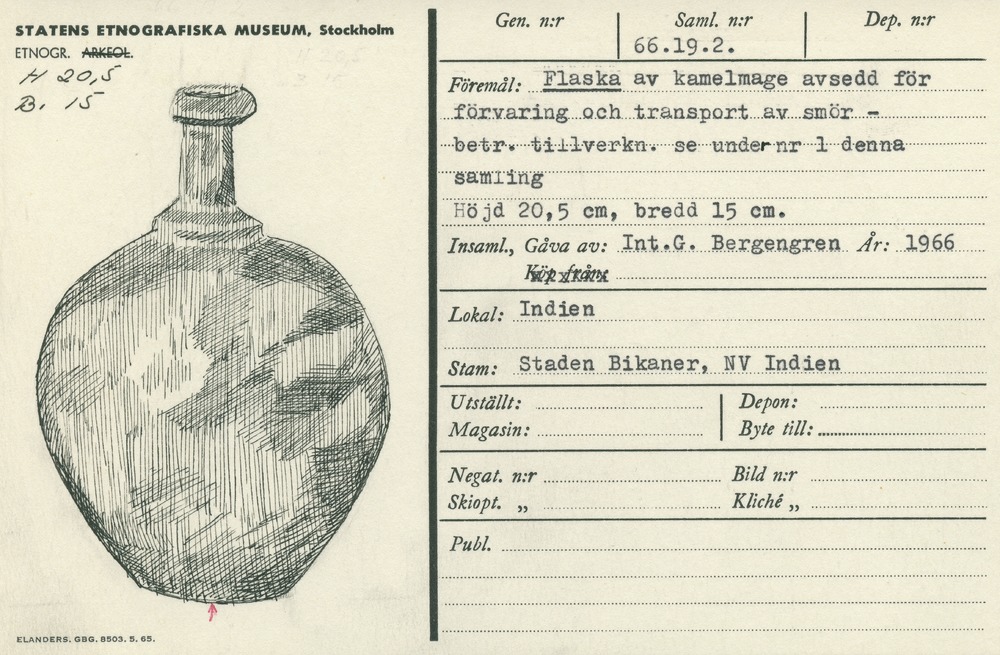 STATENS ETNOGRAFISKA MUSEUM, Stockholm
ETNOGR. ARKEOL.
H 20,5
B. 15
ELANDERS. GBG. 8503. 5. 65.
Gen. n:r Saml. n:r Dep. n:r
66.19.2.
Föremål: Flaska av kamelmage avsedd för
förvaring och transport av smör -
betr. tillverkn. se under nr 1 denna
samling
Höjd 20,5 cm, bredd 15 cm.
Insaml., Gåva av: Int.G. Bergengren År: 1966
Köp från:
Lokal: Indien
Stam: Staden Bikaner, NV Indien
Utställt: Depon:
Magasin: Byte till:
Negat. n:r Bild n:r
Skiopt. „ Kliché „
Publ.